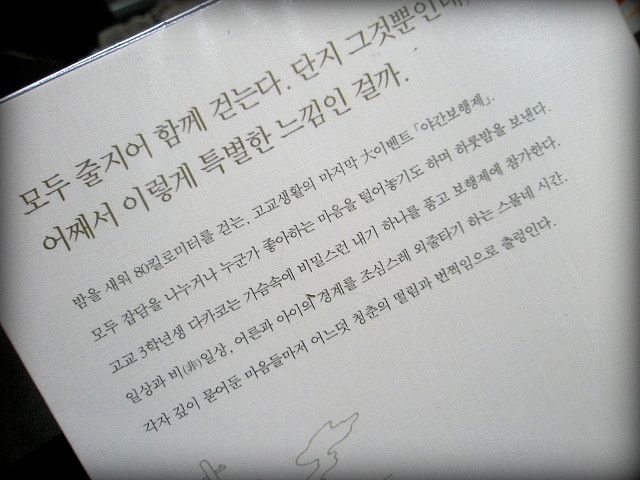 모두 줄지어 함께 걷는다. 단지 그것뿐인데,
어째서 이렇게 특별한 느낌인 걸까.
밤을 새워 80킬로미터를 걷는, 고교생활의 마지막 大이벤트 「야간보행제」.
모두 잡담을 나누거나 누군가 좋아하는 마음을 털어놓기도 하며 하룻밤을 보낸다.
고교 3학년생 다카코는 가슴속에 비밀스런 내기 하나를 품고 보행제에 참가한다.
일상과 비(非)일상, 어른과 아이의 경계를 조심스레 외줄타기 하는 스물네 시간.
각자 깊이 묻어둔 마음들마저 어느덧 청춘의 떨림과 번쩍임으로 출렁인다.